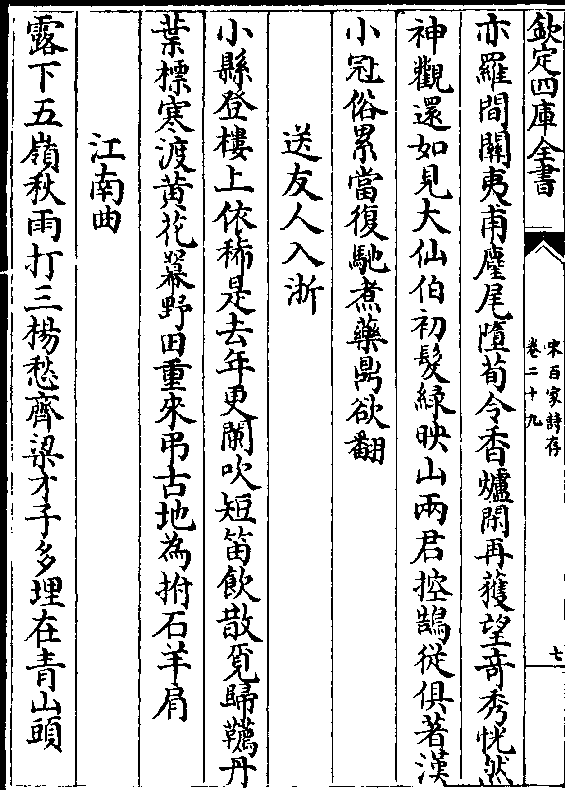 欽定四庫全書
宋百家詩存
卷二十九
七
亦羅間關夷甫麈尾墮荀令香爐閑再獲望竒秀恍然
神觀還如見大仙伯初髮緑映山兩君控鵠従俱著漢
小冠俗累當復馳煮藥鼎欲翻
送友人入浙
小縣登樓上依稀是去年更闌吹短笛飲散覔歸韉丹
葉標寒渡黄花羃野田重來弔古地為拊石羊肩
江南曲
露下五嶺秋雨打三楊愁齊梁才子多埋在青山頭